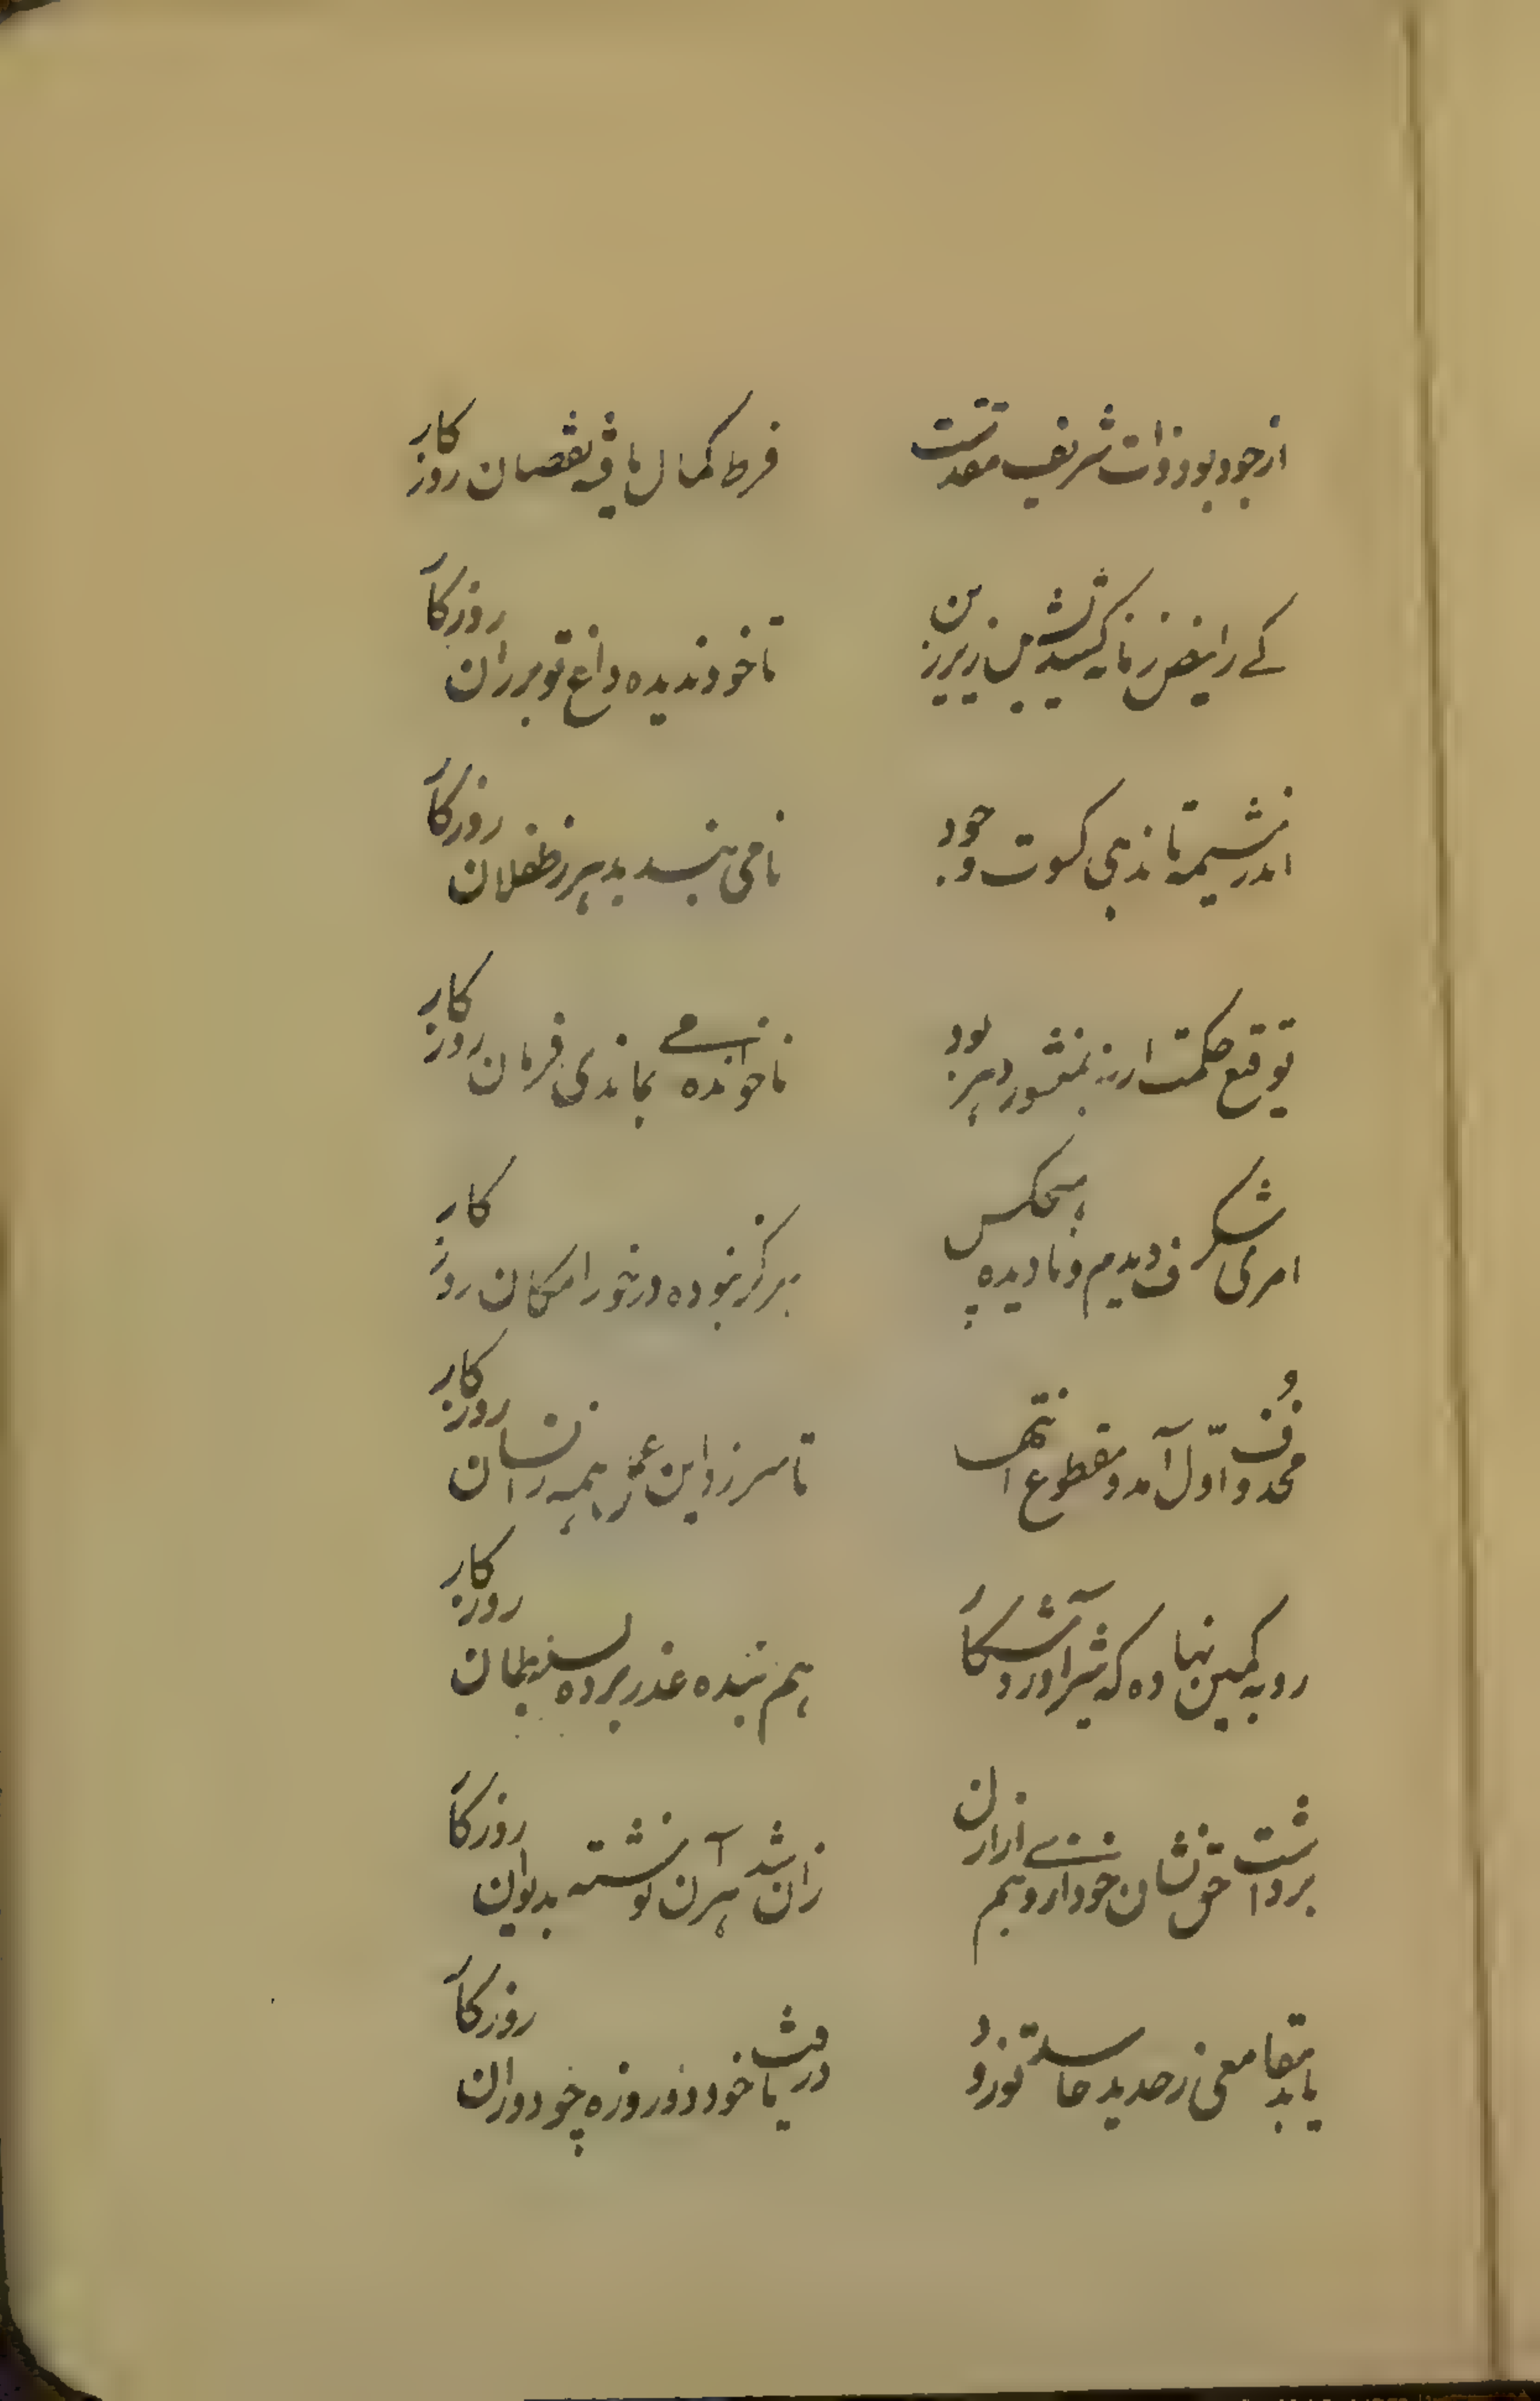 از جود بود ذات شریف مقدست
فرط کمال مافی نقصان روزکار
کے رایض زمانه کشیدیش زیر زین
تا خود ندیده داغ تو بر ران روزکار
اندر مشیمه تا ندهی کسوت وجود
نامی نپسندد بهر طفلان روزکار
توقیع حکمت ار نه بمنشور دهر بود
ناخوانده بماندی فرمان روزکار
امری شکرف دیدم و نادیده هیچکس
هرکز نبوده در خور امکان روزکار
محذوف اول آمد و مقطوع انتها
تا سر زد این عمل همه ز انسان روزکار
روبه کمین نهاده که شیر آورد شکار
هم بنده غدر برده بسلیمان روزکار
برداشت خوشان خود دار و هم از ان
زان شد هر آن نوشته بدیوان روزکار
یابد بقا معنی ز حدید حاسد تو زود
دریافت با خود دو روزه چو دوران روزکار